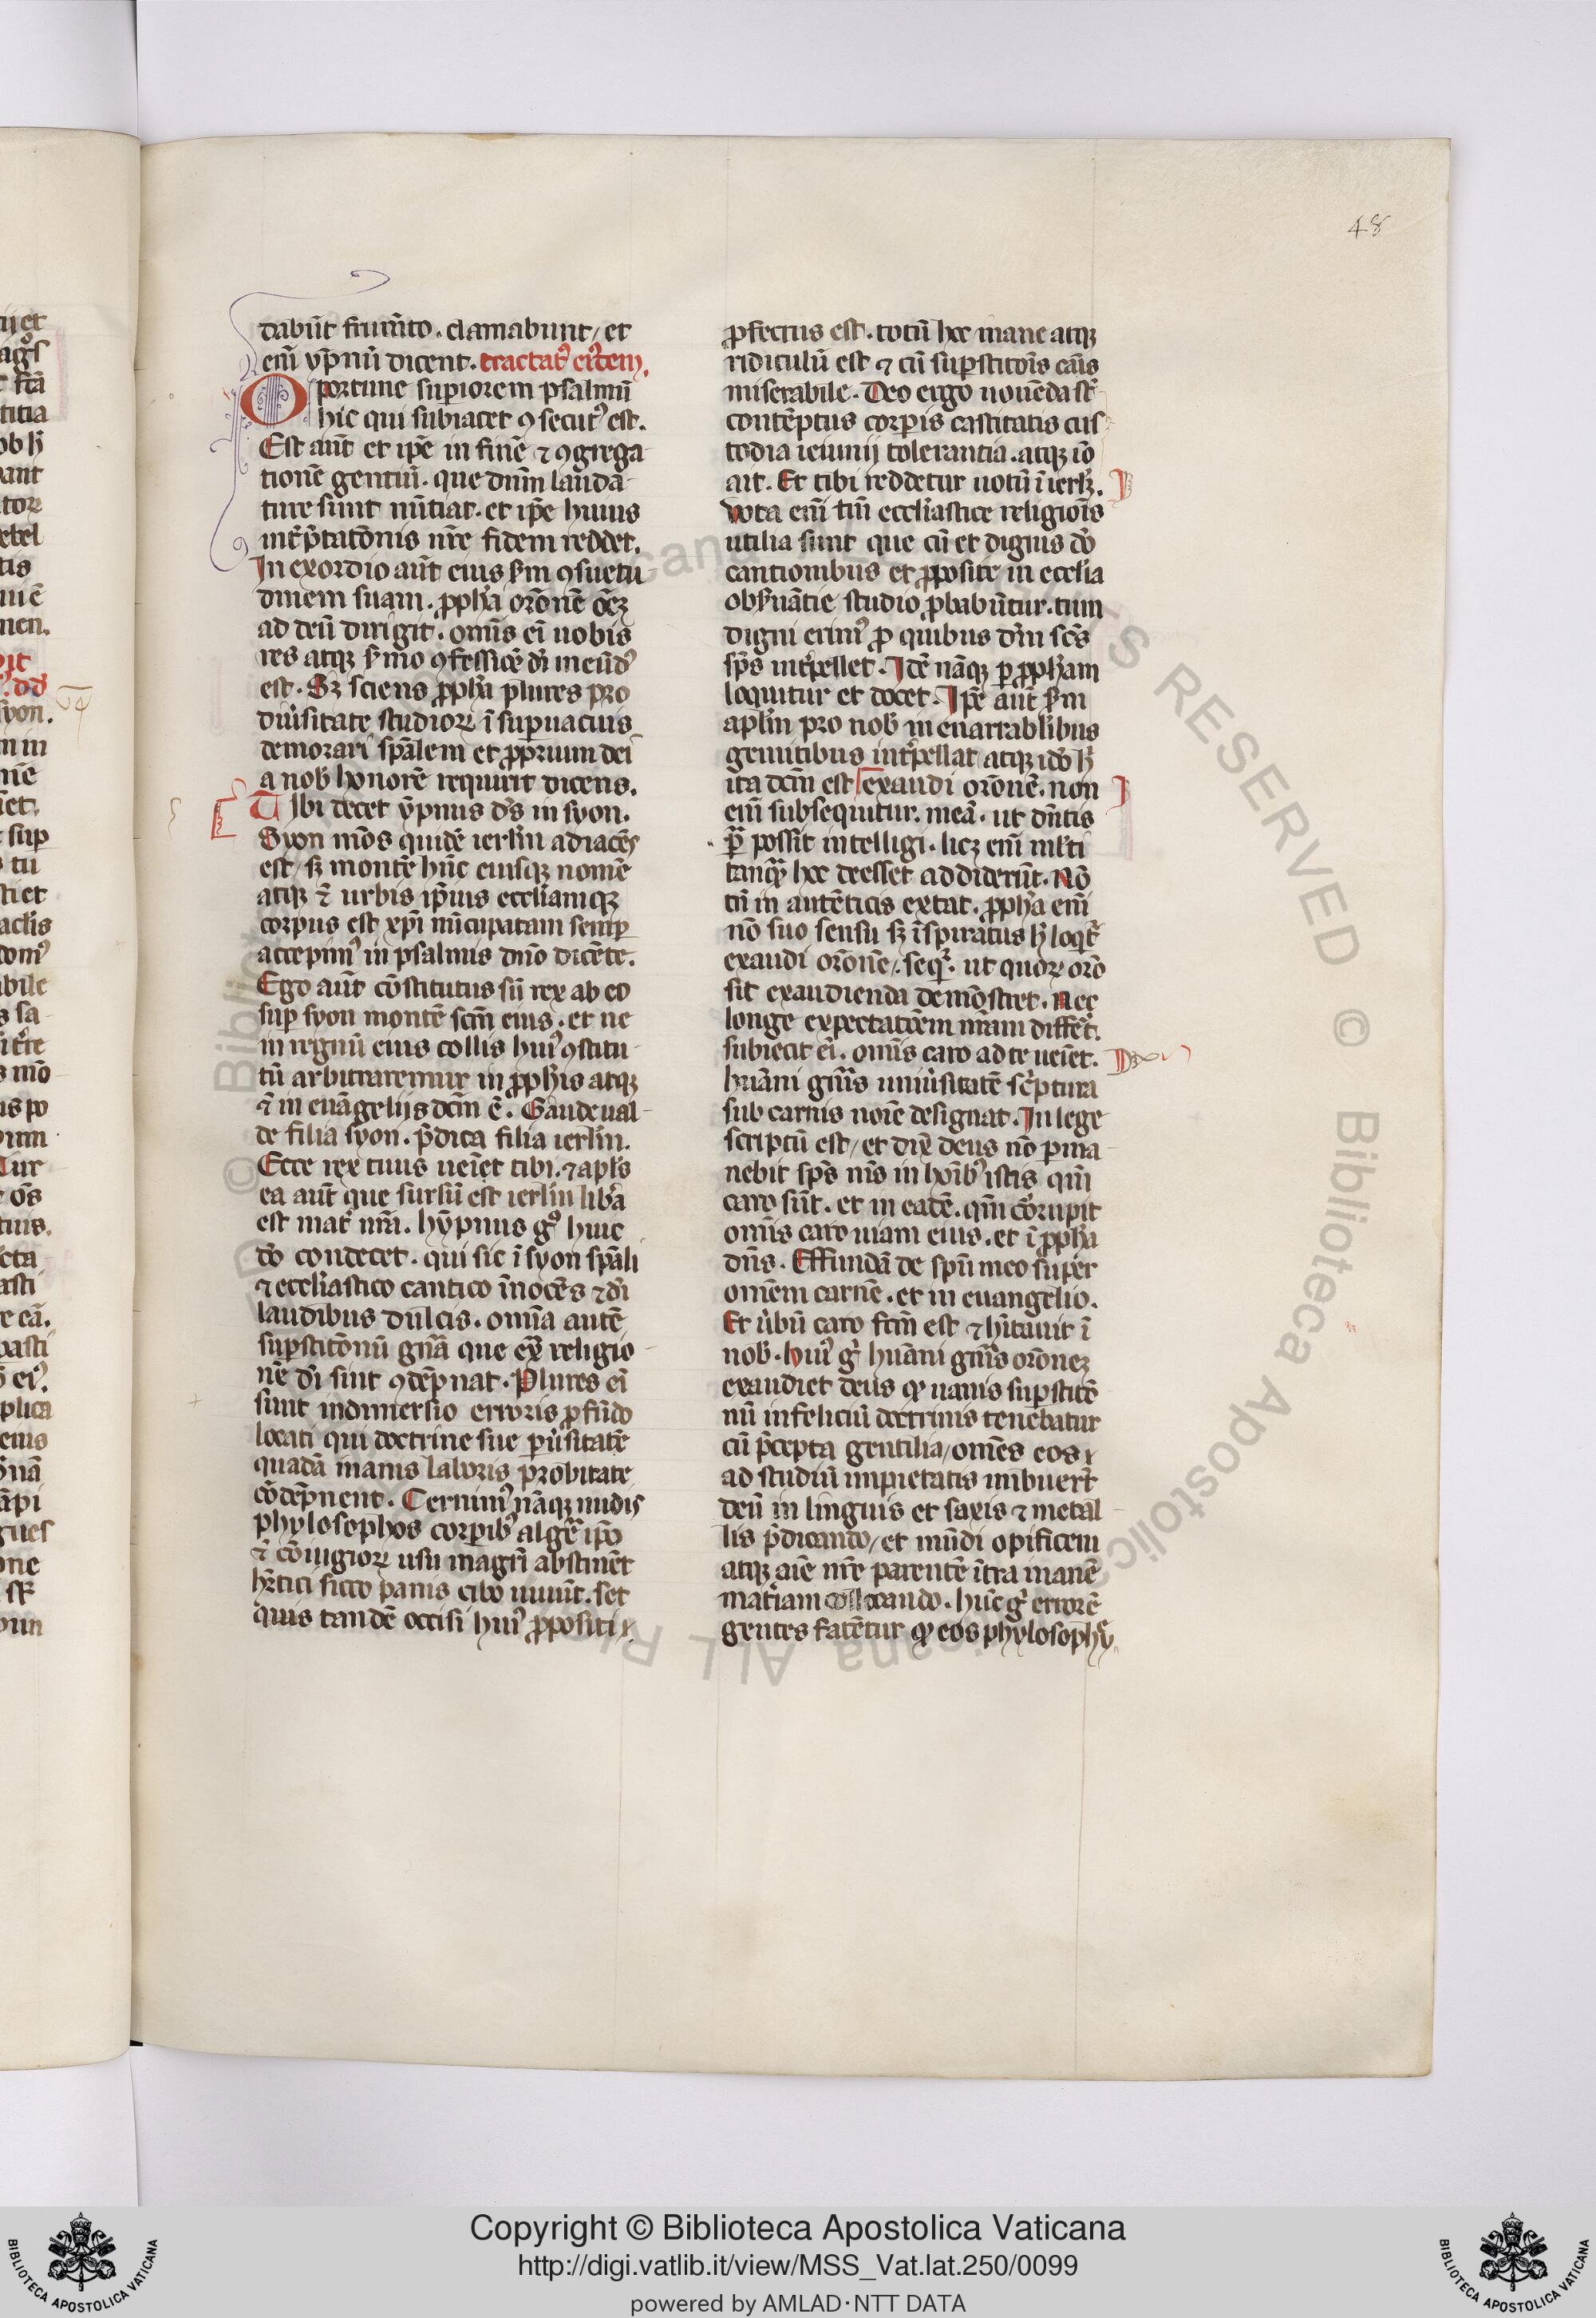 48
dabūt frum̄to. clamabunt, et
eni᷒ yp̄nū dicent. tractatꝰ eiꝰdem.
Oportune superiorem psalmū
hic qui subiacet ꝯsecutꝰ est.
Est aūt et ip̄e in finē ⁊ ꝯgrega-
tionē gentiū. que dn̄m laudā-
ture sunt nūtiat. et ip̄e huius
int̄p̄tatōnis nr̄e fidem reddet.
In exordio aūt eius s̄m ꝯsuetu-
dinem suam. ꝓph̄a or̄onē om̄ez
ad deū dirigit. omīs ei᷒ nobis
res atqꝫ s̄mo ꝯfessiōe d̄i ineūdꝰ
est. Sꝫ sciens ꝓph̄a plures pro
diu̓sitate studioꝝ ī suꝑuacuis
demorari sp̄alem et ꝓprium dei
a nob̄ honorē requirit dicens.
Tibi decet ȳpnus d̄s in syon.
Syon mōs quidē ierl̄m adiacēs
est, sꝫ montē hūc eiusqꝫ nomē
atqꝫ ⁊ urbis ip̄ius eccl̄iamqꝫ
corpus est xp̄i nūcupatam semꝑ
accepimꝰ in psalmis dn̄o dicēte.
Ego aūt cōstitutus sū rex ab eo
suꝑ syon montē sc̄m eius. et ne
in regnū eius collis huiꝰ ꝯstitu-
tū arbitraremur in ꝓph̄is atqꝫ
⁊ in euāgelijs dc̄m ē. Gaude ual-
de filia syon. p̄dica filia ierl̄m.
Ecce rex tuus ueīet tibi. ⁊ apl̄s
ea aūt que sursū est ierl̄m lib̄a
est mat̓ nr̄a. hȳpnus gͦ huic
dō condecet. qui sic ī syon sp̄ali
⁊ eccl̄iastico cantico īnocēs ⁊ d̄i
laudibus dulcis. omīa autē
suꝑstitōnū gn̄a que ex̄ religio-
nē d̄i sunt ꝯdēpnat. Plures ei᷒
sunt indimersio erroris ꝓfūdo
locati qui doctrine sue ꝑu̓sitatē
quadā inanis laboris probitate
cōdēpnent. Cernimꝰ nāqꝫ nudis
phylosophos corꝑibꝰ alge̓ ip̄o
⁊ cōiugioꝝ usu magn̄i abstinēt
hr̄etici sicco panis cibo uiuūt. set
quis tandē occisi huiꝰ ꝓpositi
ꝓfectus est. totū hoc inane atqꝫ
ridiculū est ⁊ cū suꝑstitōīs caūs
miserabile. Deo ergo uouēda st̄
contēptus corꝑis castitatis cus
todia ieiunij tolerantia. atqꝫ iō
ait. Et tibi reddetur uotū ī ierl̄ꝫ.
vota eni᷒ tūī eccl̄iastice religiōis
utilia sunt que cū et dignis dō
cantionibus et ꝓposite in ecclesia
obs̓uātie studio ꝓbabūtur. tum
digni erimꝰ ꝓ quibus d̄m sc̄s
sp̄s int̓pellet. Idē nāqꝫ ꝑ ꝓph̄am
loquitur et docet. Ip̄e aūt s̄m
apl̄m pro nob̄ inenarrabl̄ibus
gemitibus int̓pellat, atqꝫ idō h̓
ita dcm̄ est exaudi or̄onē. non
eni᷒ subsequitur. meā. ut dn̄tis
p̄ possit intelligi. licꝫ eni᷒ ml̄ti
tanq̄ hoc deesset addiderūt. Nō
tn̄ in autēticis extat. ꝓph̄a eni᷒
nō suo sensu sꝫ īspiratus h̓ loqt̓
exaudi or̄onē. seqr̓. ut quoꝝ or̄o
sit exaudienda demōstret. Nec
longe expectatōem nr̄am differt̓.
subiecit ei᷒. omīs caro ad te ueīet.
huāni gn̄is uniu̓sitatē sc̓ptura
sub carnis noīe designat. In lege
scriptū est, et dix̄ deus nō ꝑma-
nebit sp̄s ms̄ in hoībꝰ istis qm̄
caro sūt. et in eadē. qm̄ cōrupit
omīs caro uiam eius. et ī ꝓph̄a
dn̄s. Effundā de spū meo super
omēm carnē. et in euangelio.
Et ūbū caro fcm̄ est ⁊ h̄itauit ī
nob̄. huiꝰ g̓ huāni gn̄is or̄onez
exaudiet deus qͥ uanis suꝑstitō
nū infeliciū doctrinis tenebatur
cū p̄cepta gentilia, omēs eos
ad studiū impietatis imbuert̄
deū in linguis et saxis ⁊ metal-
lis p̄dicando, et mūdi opificem
atqꝫ aīe nr̄e parentē īt̓a inanē
mat̓iam collocando. hūc g̓ errorē
gentes fatētur qͥ eos phylosophy
Copyright © Biblioteca Apostolica Vaticana
http://digi.vatlib.it/view/MSS_Vat.lat.250/0099
powered by AMLAD·NTT DATA
BIBLIOTECA APOSTOLICA VATICANA
BIBLIOTECA APOSTOLICA VATICANA